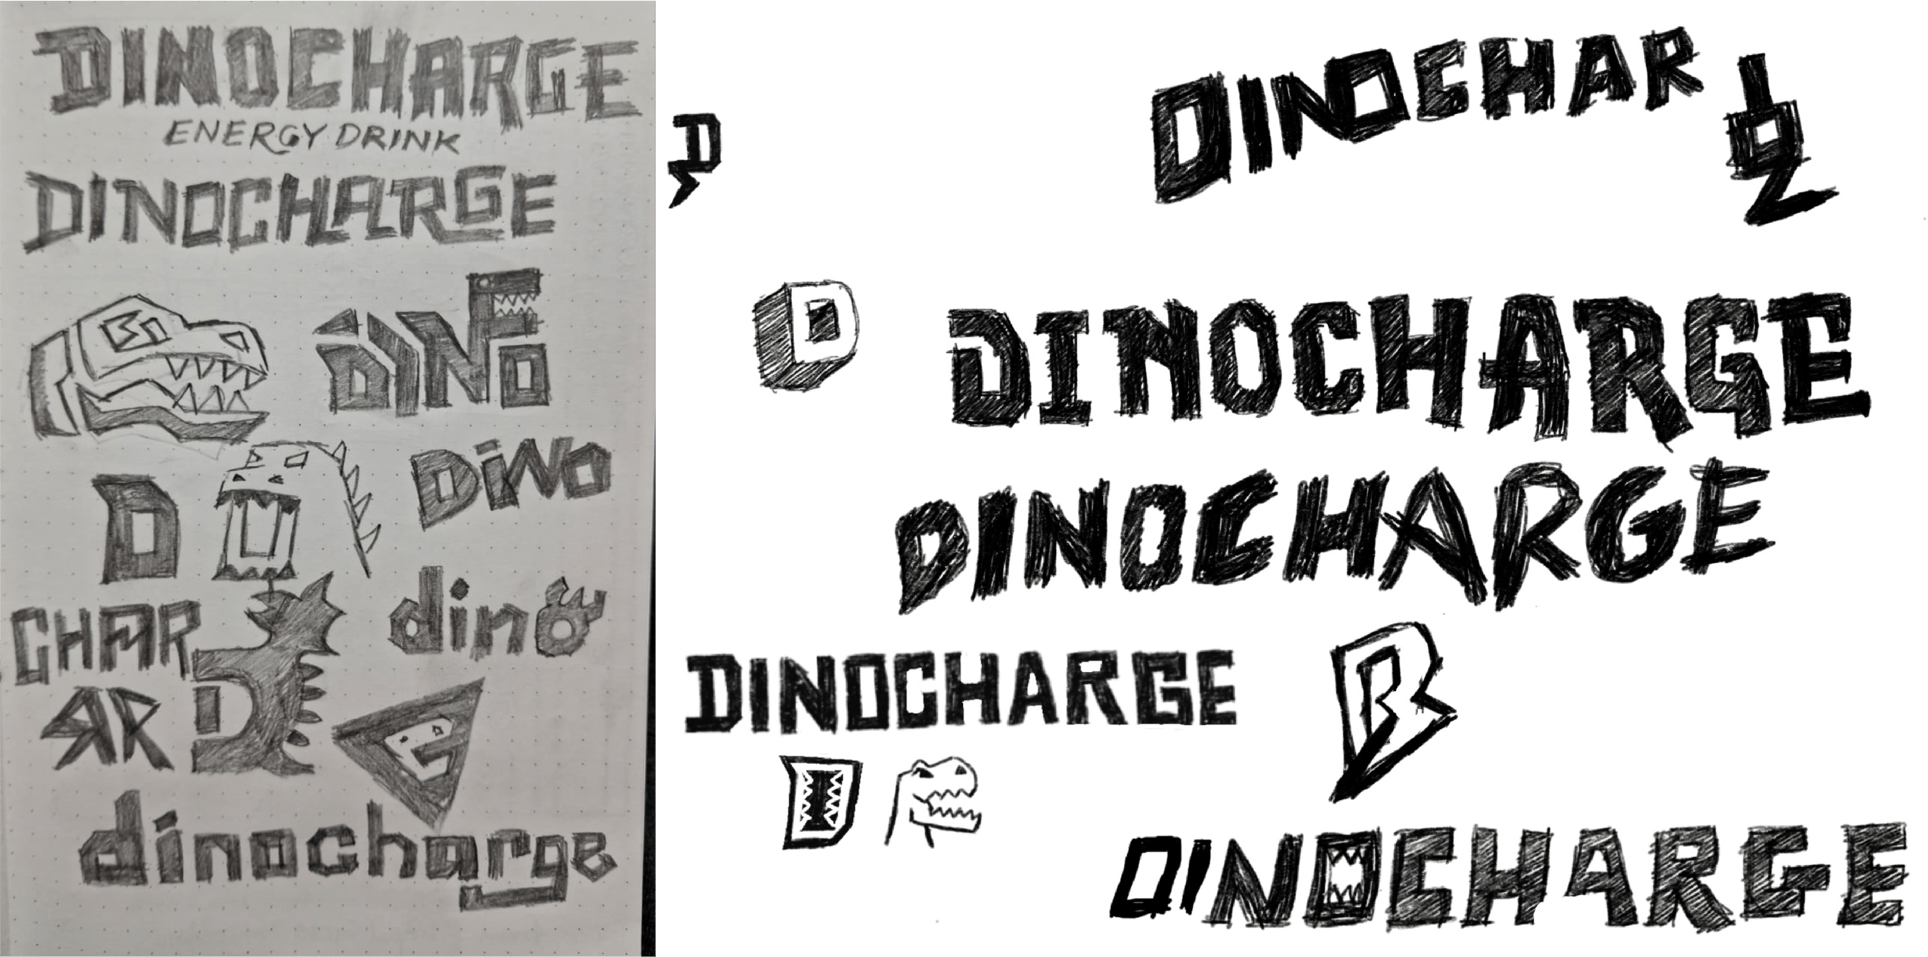 DINOCHARGE
ENERGY DRINK
DINOCHARGE
DINO
D
DiNO
CHAR
dino
RR
D
dinocharge
DINOCHAR
D
DINOCHARGE
DINOCHARGE
DINOCHARGE
D
DINOCHARGE